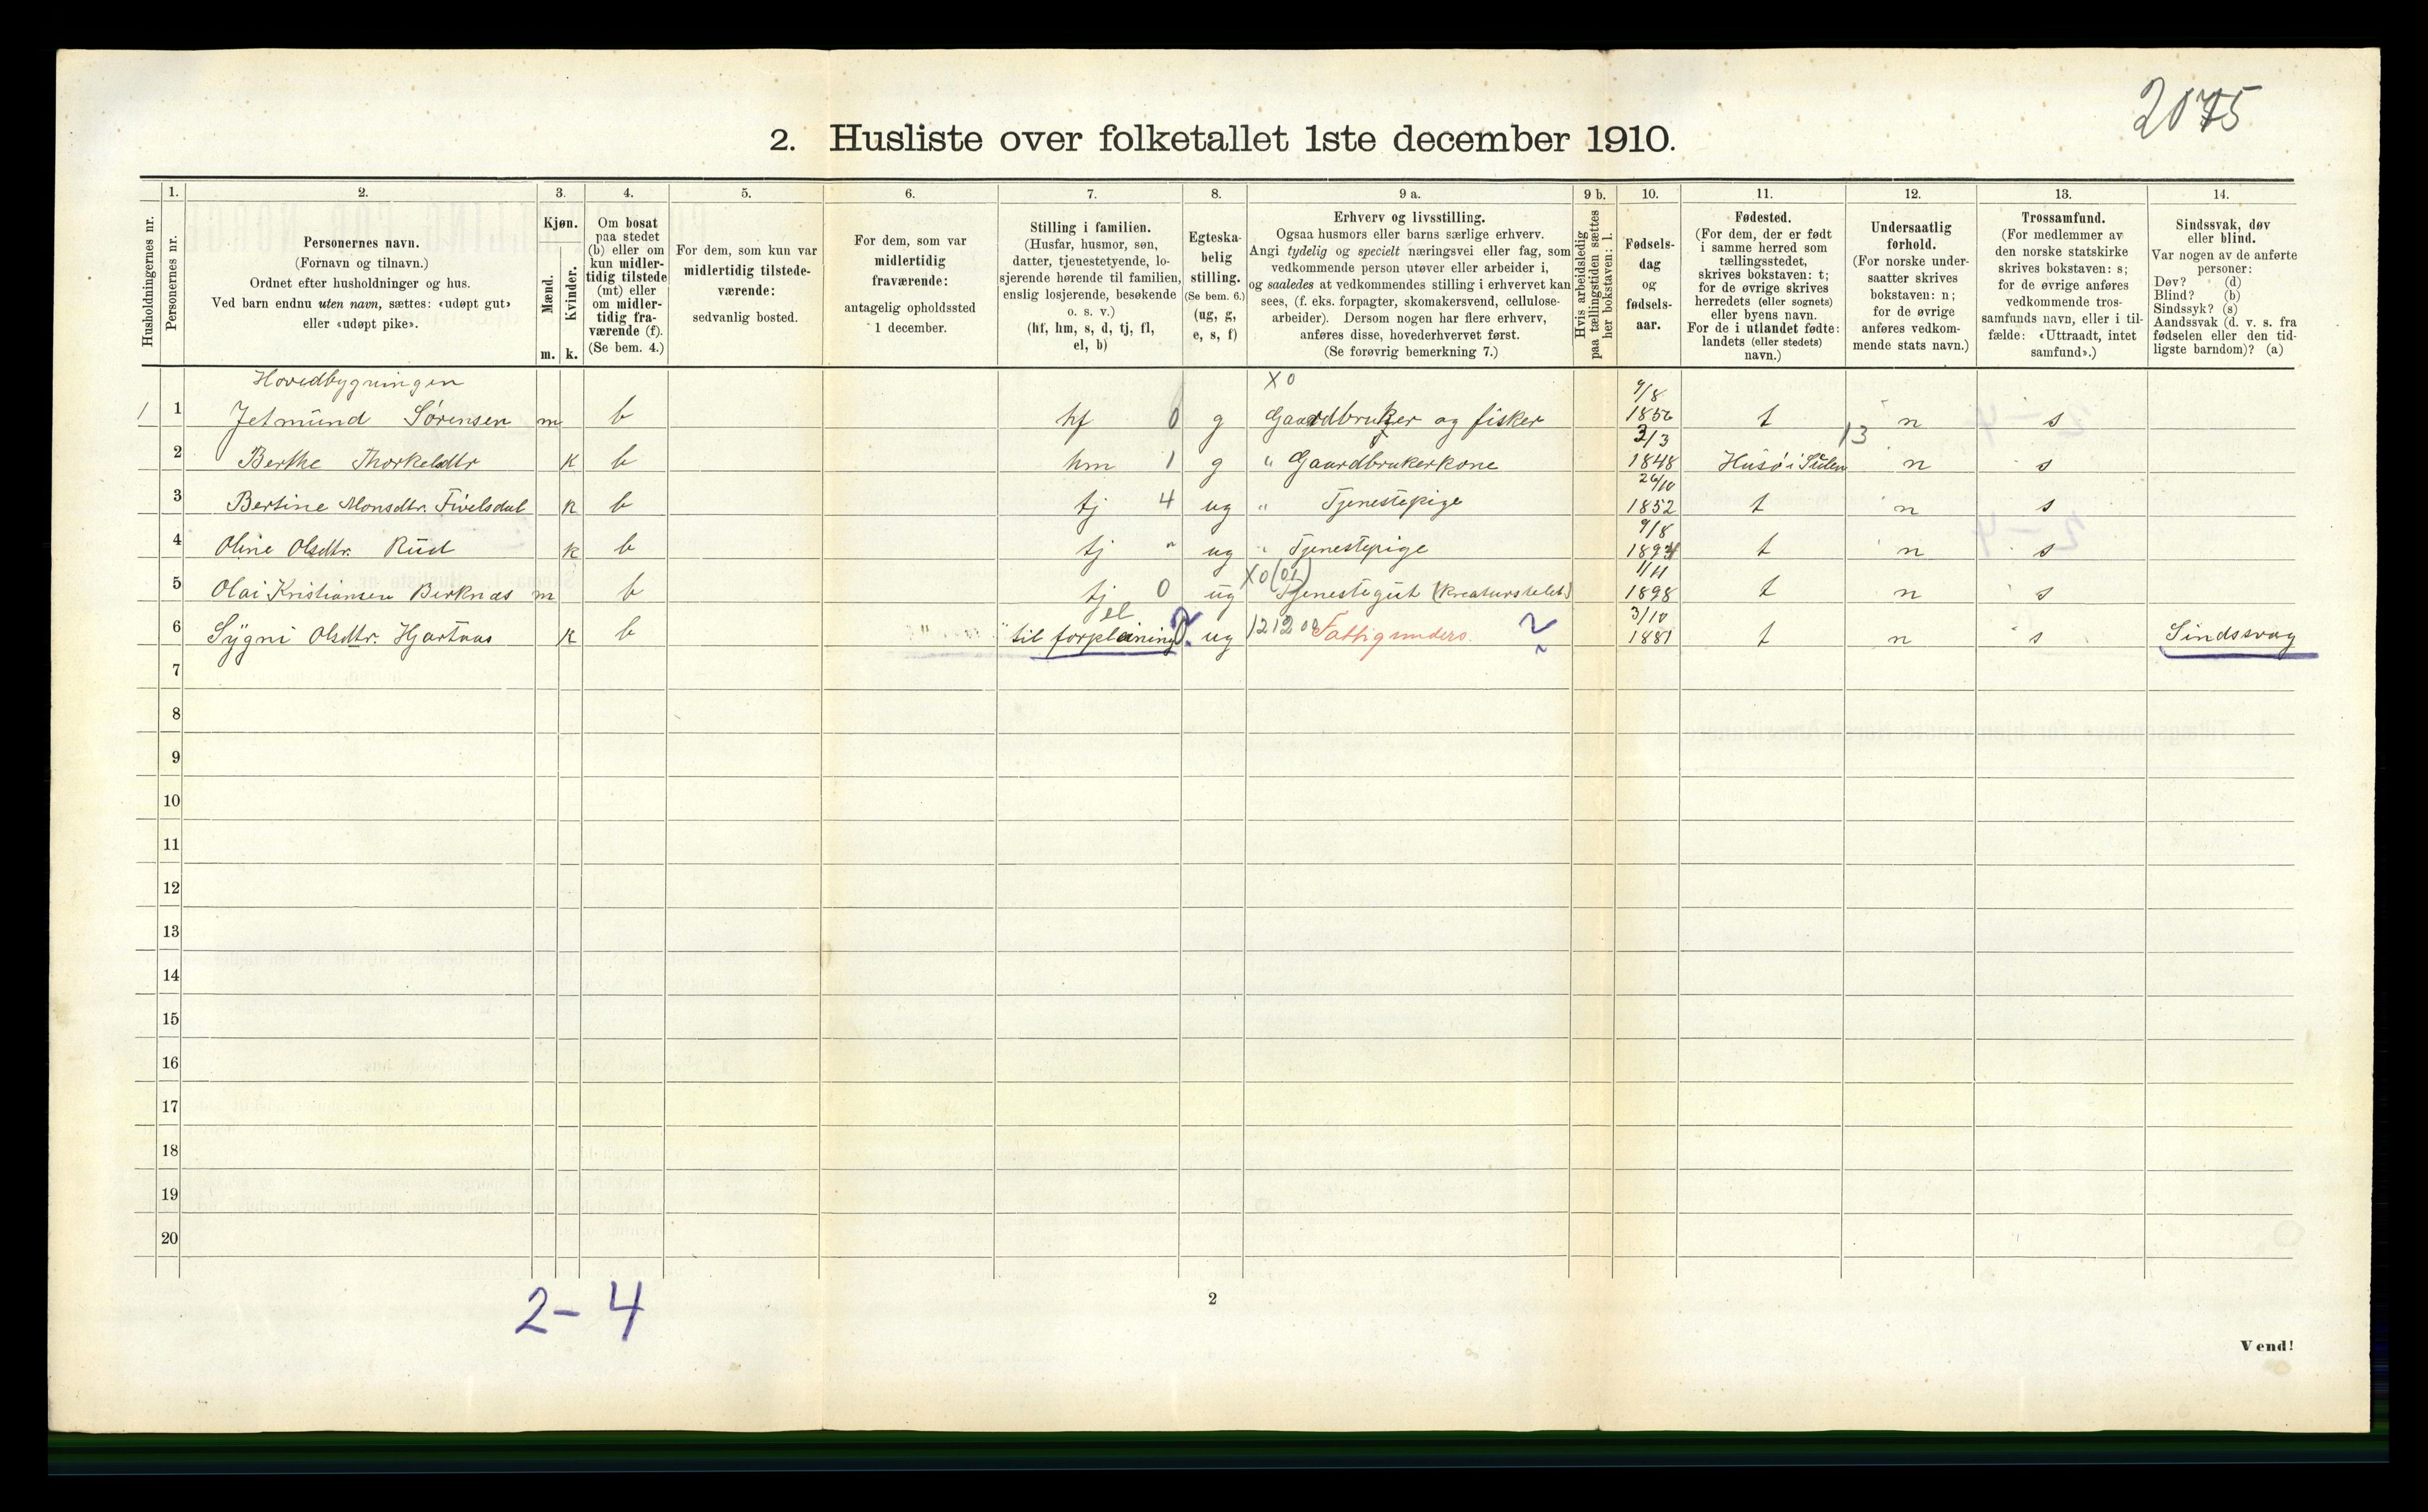 2075
2. Husliste over folketallet 1ste december 1910.
Husholdningernes nr.
1. Personernes nr.
2. Personernes navn.
(Fornavn og tilnavn.)
Ordnet efter husholdninger og hus.
Ved barn endnu uten navn, sættes: «udøpt gut»
eller «udøpt pike».
3. Kjøn.
Mænd. Kvinder.
m. k.
4. Om bosat
paa stedet
(b) eller om
kun midler-
tidig tilstede
(mt) eller
om midler-
tidig fra-
værende (f).
(Se bem. 4.)
5. For dem, som kun var
midlertidig tilstede-
værende:
sedvanlig bosted.
6. For dem, som var
midlertidig
fraværende:
antagelig opholdssted
1 december.
7. Stilling i familien.
(Husfar, husmor, søn,
datter, tjenestetyende, lo-
sjerende hørende til familien,
enslig losjerende, besøkende
o. s. v.)
(hf, hm, s, d, tj, fl,
el, b)
8. Egteska-
belig
stilling.
(Se bem. 6.)
(ug, g,
e, s, f)
9 a. Erhverv og livsstilling.
Ogsaa husmors eller barns særlige erhverv.
Angi tydelig og specielt næringsvei eller fag, som
vedkommende person utøver eller arbeider i,
og saaledes at vedkommendes stilling i erhvervet kan
sees, (f. eks. forpagter, skomakersvend, cellulose-
arbeider). Dersom nogen har flere erhverv,
anføres disse, hovederhvervet først.
(Se forøvrig bemerkning 7.)
9 b. Hvis arbeidsledig
paa tællingstiden sættes
her bokstaven: l.
10. Fødsels-
dag
og
fødsels-
aar.
11. Fødested.
(For dem, der er født
i samme herred som
tællingsstedet,
skrives bokstaven: t;
for de øvrige skrives
herredets (eller sognets)
eller byens navn.
For de i utlandet fødte:
landets (eller stedets)
navn.)
12. Undersaatlig
forhold.
(For norske under-
saatter skrives
bokstaven: n;
for de øvrige
anføres vedkom-
mende stats navn.)
13. Trossamfund.
(For medlemmer av
den norske statskirke
skrives bokstaven: s;
for de øvrige anføres
vedkommende tros-
samfunds navn, eller i til-
fælde: «Uttraadt, intet
samfund».)
14. Sindssvak, døv
eller blind.
Var nogen av de anførte
personer:
Døv? (d)
Blind? (b)
Sindssyk? (s)
Aandssvak (d. v. s. fra
fødselen eller den tid-
ligste barndom)? (a)
Hovedbygningen X0
1 1 Jetmund Sørensen m b hf 0 g Gaardbruker og fisker 9/8 1856 t n s
2 Berthe Thorkeldtr k b hm 1 g " Gaardbrukerkone 3/3 1848 Husø i Sulen 13 n s
3 Bertine Monsdtr. Fivelsdal k b tj 4 ug " Tjenestepige 26/10 1852 t n s
4 Oline Olsdtr. Rud k b tj " ug " Tjenestepige 9/8 1894 t n s
5 Olai Kristiansen Birknæs m b tj 0 ug X0(01) Tjenestegut (Kreaturstelet) 1/11 1898 t n s
6 Sygni Olsdtr. Hjartaas k b el til forpleining 0 ug 1212 Fattigunders. 3/10 1881 t n s Sindssvag
7
8
9
10
11
12
13
14
15
16
17
18
19
20
2-4
2
Vend!